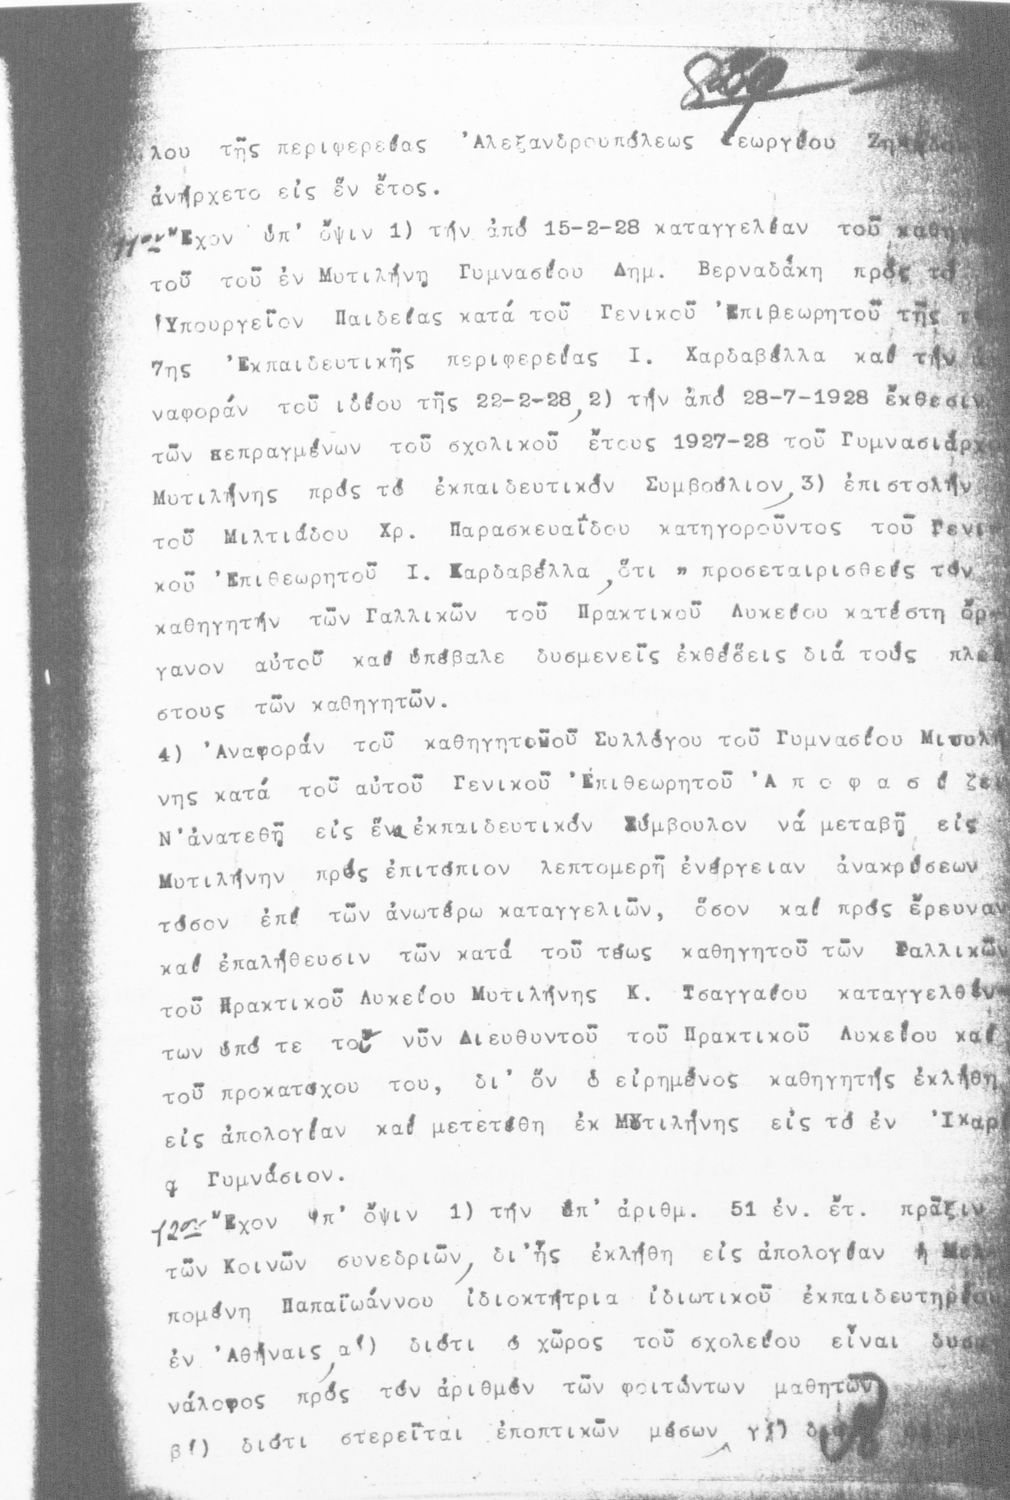 λου τῆς περιφερείας Ἀλεξανδρουπόλεως Γεωργίου
ἀνήρχετο εἰς ἕν ἔτος.
11ον Ἔχον ὑπ' ὄψιν 1) τήν ἀπό 15-2-28 καταγγελίαν τοῦ καθηγη
τοῦ τοῦ ἐν Μυτιλήνῃ Γυμνασίου Δημ. Βερναδάκη πρός τό
Ὑπουργεῖον Παιδείας κατά τοῦ Γενικοῦ Ἐπιθεωρητοῦ τῆς
7ης Ἐκπαιδευτικῆς περιφερείας Ι. Χαρδαβέλλα καί τήν ἀ
ναφοράν τοῦ ἰδίου τῆς 22-2-28, 2) τήν ἀπό 28-7-1928 ἔκθεσιν
τῶν πεπραγμένων τοῦ σχολικοῦ ἔτους 1927-28 τοῦ Γυμνασιάρχου
Μυτιλήνης πρός τό ἐκπαιδευτικόν Συμβούλιον, 3) ἐπιστολήν
τοῦ Μιλτιάδου Χρ. Παρασκευαΐδου κατηγοροῦντος τοῦ Γενι-
κοῦ Ἐπιθεωρητοῦ Ι. Χαρδαβέλλα, ὅτι " προσεταιρισθείς τόν
καθηγητήν τῶν Γαλλικῶν τοῦ Πρακτικοῦ Λυκείου κατέστη ὄρ-
γανον αὐτοῦ καί ὑπέβαλε δυσμενεῖς ἐκθέσεις διά τούς πλεί
στους τῶν καθηγητῶν.
4) Ἀναφοράν τοῦ καθηγητικοῦ Συλλόγου τοῦ Γυμνασίου Μυτιλή
νης κατά τοῦ αὐτοῦ Γενικοῦ Ἐπιθεωρητοῦ Ἀ π ο φ α σ ί ζει
Ν' ἀνατεθῇ εἰς ἕνα ἐκπαιδευτικόν Σύμβουλον νά μεταβῇ εἰς
Μυτιλήνην πρός ἐπιτόπιον λεπτομερῆ ἐνέργειαν ἀνακρίσεων
τόσον ἐπί τῶν ἀνωτέρω καταγγελιῶν, ὅσον καί πρός ἔρευναν
καί ἐπαλήθευσιν τῶν κατά τοῦ τέως καθηγητοῦ τῶν Γαλλικῶν
τοῦ Πρακτικοῦ Λυκείου Μυτιλήνης Κ. Τσαγγαίου καταγγελθέν-
των ὑπό τε τοῦ νῦν Διευθυντοῦ τοῦ Πρακτικοῦ Λυκείου καί
τοῦ προκατόχου του, δι' ὅν ὁ εἰρημένος καθηγητής ἐκλήθη
εἰς ἀπολογίαν καί μετετέθη ἐκ Μυτιλήνης εἰς τό ἐν Ἰκαρί
ᾳ Γυμνάσιον.
12ον Ἔχον ὑπ' ὄψιν 1) τήν ὑπ' ἀριθμ. 51 ἐν. ἔτ. πρᾶξιν
τῶν Κοινῶν συνεδριῶν, δι' ἧς ἐκλήθη εἰς ἀπολογίαν ἡ Μελ-
πομένη Παπαϊωάννου ἰδιοκτήτρια ἰδιωτικοῦ ἐκπαιδευτηρίου
ἐν Ἀθήναις, α') διότι ὁ χῶρος τοῦ σχολείου εἶναι δυσα
νάλογος πρός τόν ἀριθμόν τῶν φοιτώντων μαθητῶν
β') διότι στερεῖται ἐποπτικῶν μέσων, γ')